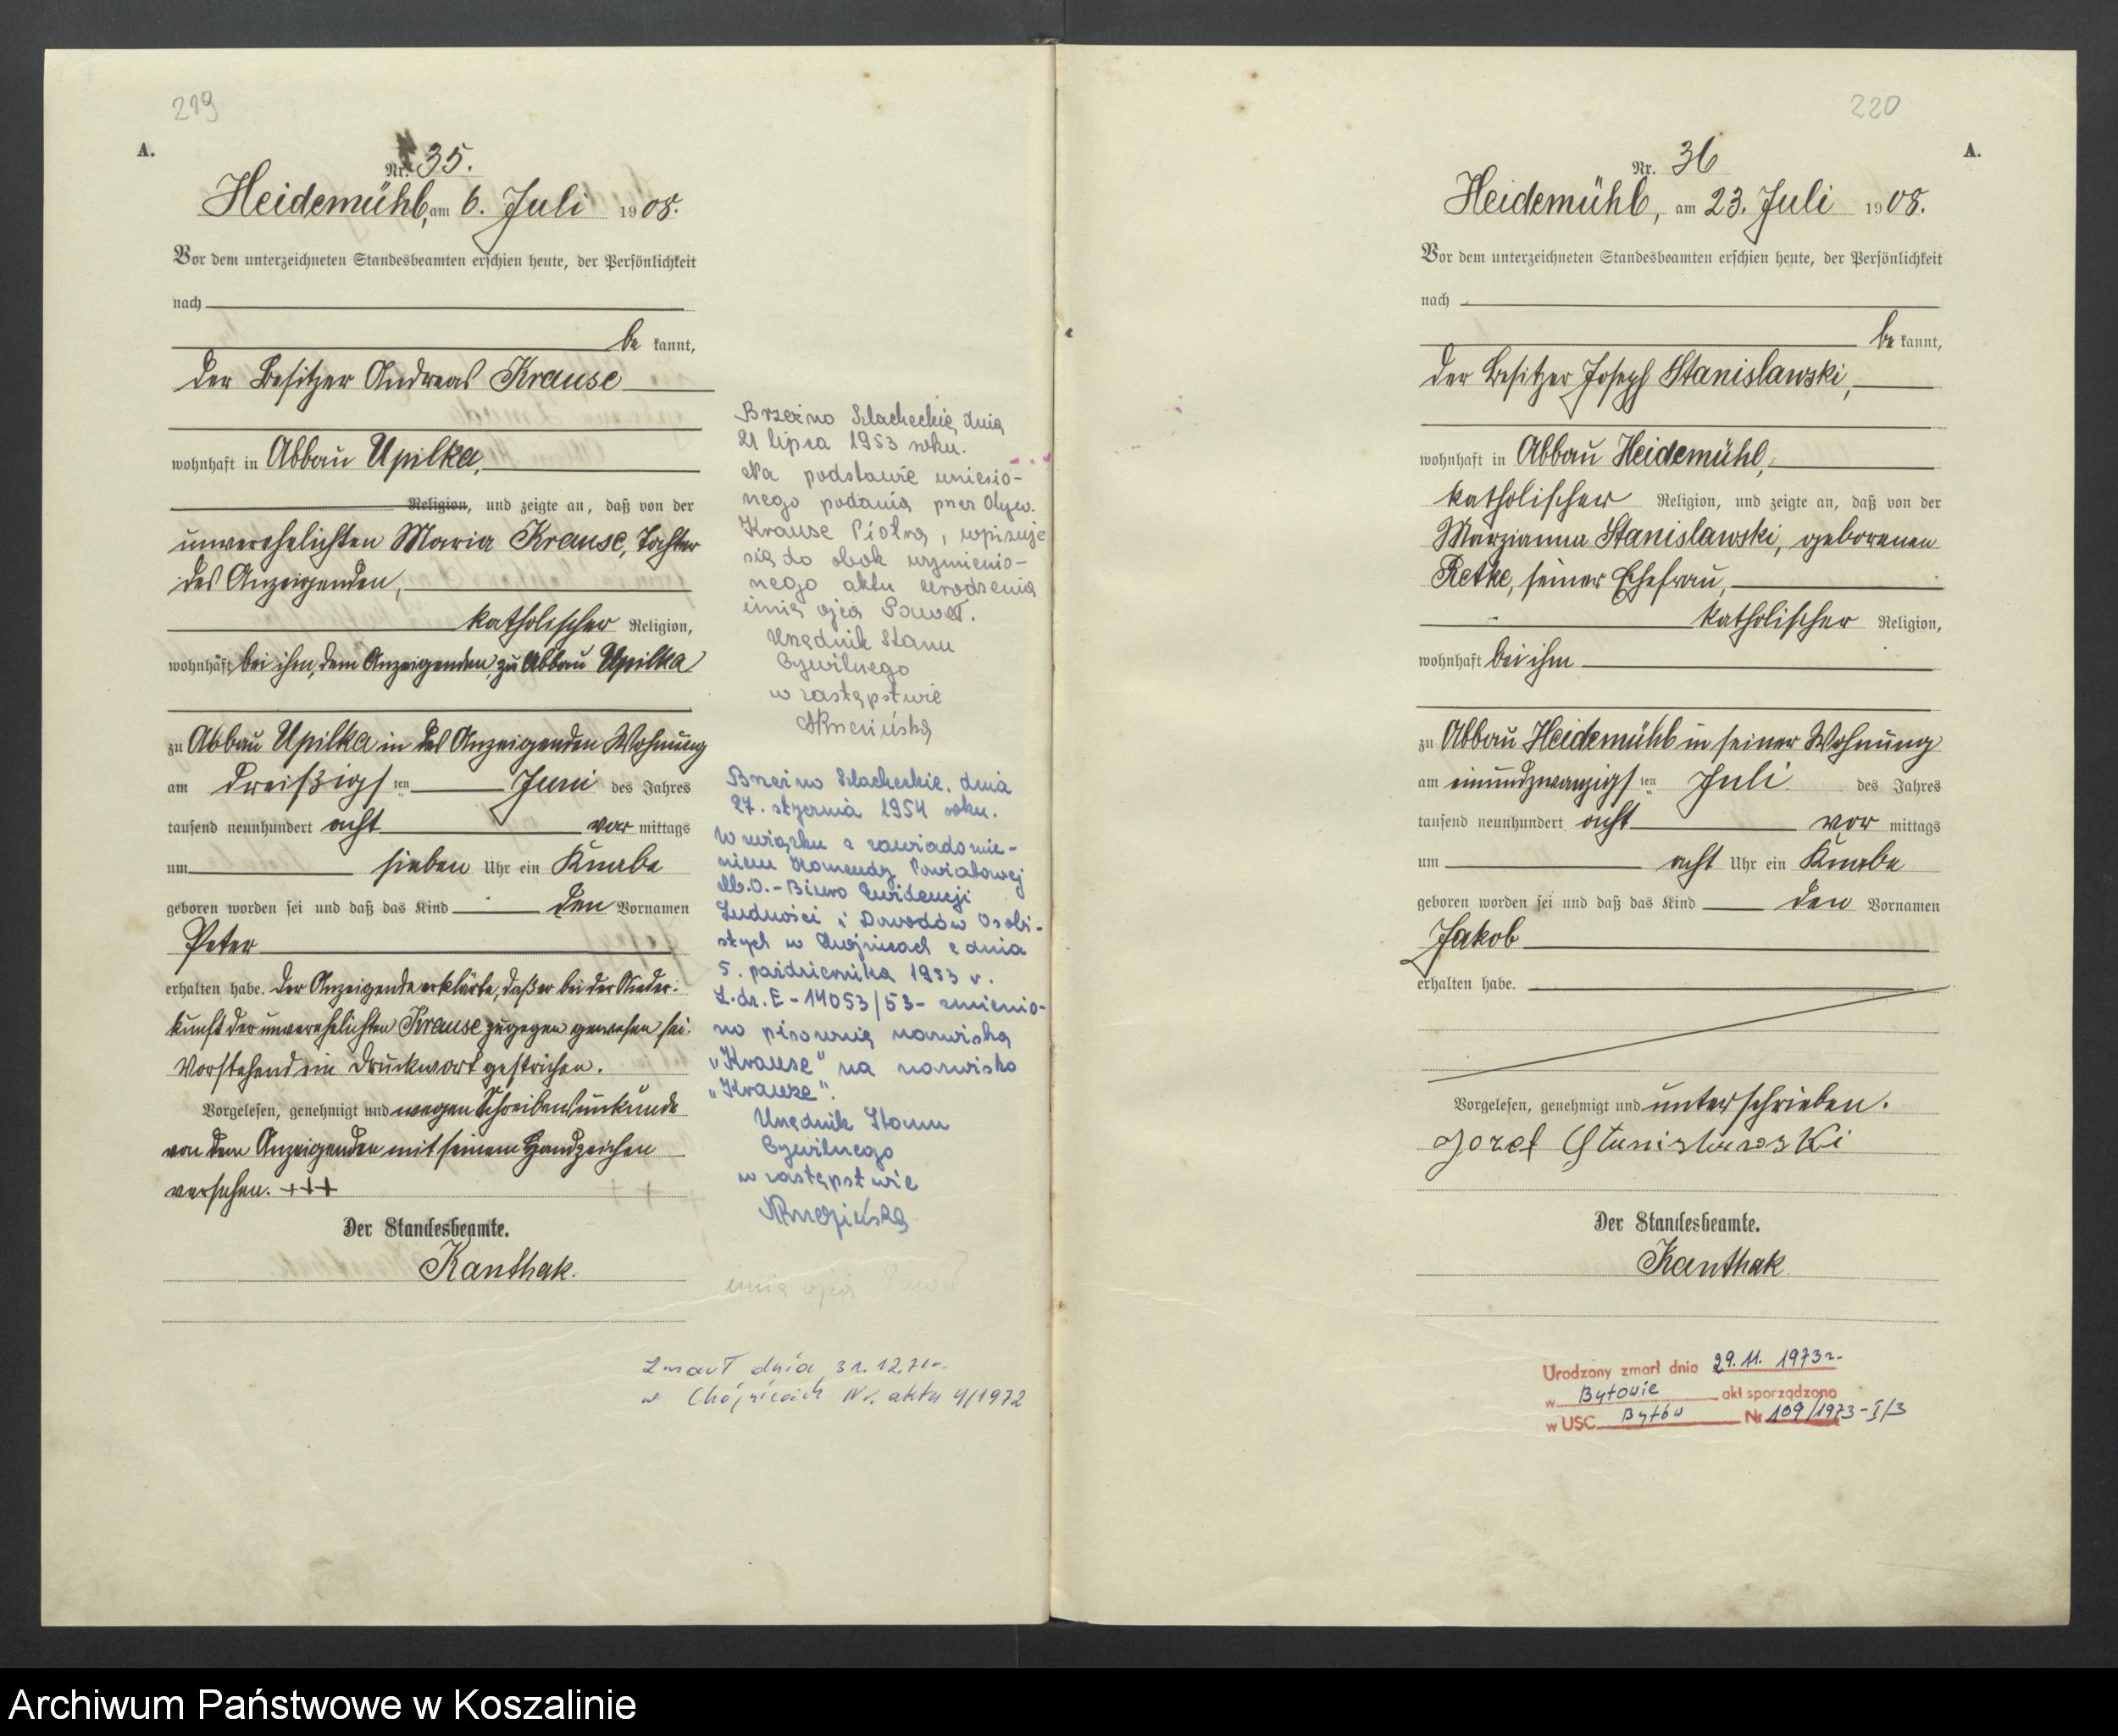 219
A.
Nr. 35.
Heidemühl, am 6. Juli 1908.
Vor dem unterzeichneten Standesbeamten erschien heute, der Persönlichkeit
nach
be kannt,
der Besitzer Andreas Krause
wohnhaft in Abbau Upilka,
Religion, und zeigte an, daß von der
unverehelichten Maria Krause, Tochter
des Anzeigenden,
katholischer Religion,
wohnhaft bei ihm, dem Anzeigenden, zu Abbau Upilka
zu Abbau Upilka in des Anzeigenden Wohnung
am dreißigsten Juni des Jahres
tausend neunhundert acht vor mittags
um sieben Uhr ein Knabe
geboren worden sei und daß das Kind den Vornamen
Peter
erhalten habe. Der Anzeigende erklärte, daß er bei der Nieder-
kunft der unverehelichten Krause zugegen gewesen sei.
Vorstehend ein Druckwort gestrichen.
Vorgelesen, genehmigt und wegen Schreibensunkunde
von dem Anzeigenden mit seinem Handzeichen
versehen. +++
Der Standesbeamte.
Kanthak.
Brzeźno Szlacheckie, dnia
21 lipca 1953 roku.
Na podstawie wniesio-
nego podania przez Obyw.
Krause Piotra, wpisuje
się do obok wymienio-
nego aktu urodzenia
imię ojca Paweł.
Urzędnik Stanu
Cywilnego
w zastępstwie
Brzeźno Szlacheckie, dnia
27. stycznia 1954 roku.
W związku z zawiadomie-
niem Komendy Powiatowej
M.O. - Biuro Ewidencji
Ludności i Dowodów Osobi-
stych w Chojnicach z dnia
5. października 1953 r.
L.dz. E - 14053/53 - zmienio-
no pisownię nazwiska
„Krause" na nazwisko
„Krauze".
Urzędnik Stanu
Cywilnego
w zastępstwie
imię ojca Paweł
Zmarł dnia 31.12.71 r.
w Chojnicach Nr. aktu 4/1972
220
A.
Nr. 36
Heidemühl, am 23. Juli 1908.
Vor dem unterzeichneten Standesbeamten erschien heute, der Persönlichkeit
nach
be kannt,
der Besitzer Joseph Stanislawski,
wohnhaft in Abbau Heidemühl,
katholischer Religion, und zeigte an, daß von der
Marzianna Stanislawski, geborenen
Retke, seiner Ehefrau,
katholischer Religion,
wohnhaft bei ihm
zu Abbau Heidemühl in seiner Wohnung
am einundzwanzigsten Juli des Jahres
tausend neunhundert acht vor mittags
um acht Uhr ein Knabe
geboren worden sei und daß das Kind den Vornamen
Jakob
erhalten habe.
Vorgelesen, genehmigt und unterschrieben.
Jozef Stanislawski
Der Standesbeamte.
Kanthak
Urodzony zmarł dnia 29.11.1973 r.
w Bytowie akt sporządzono
w USC Bytów Nr 109/1973-I/3
Archiwum Państwowe w Koszalinie